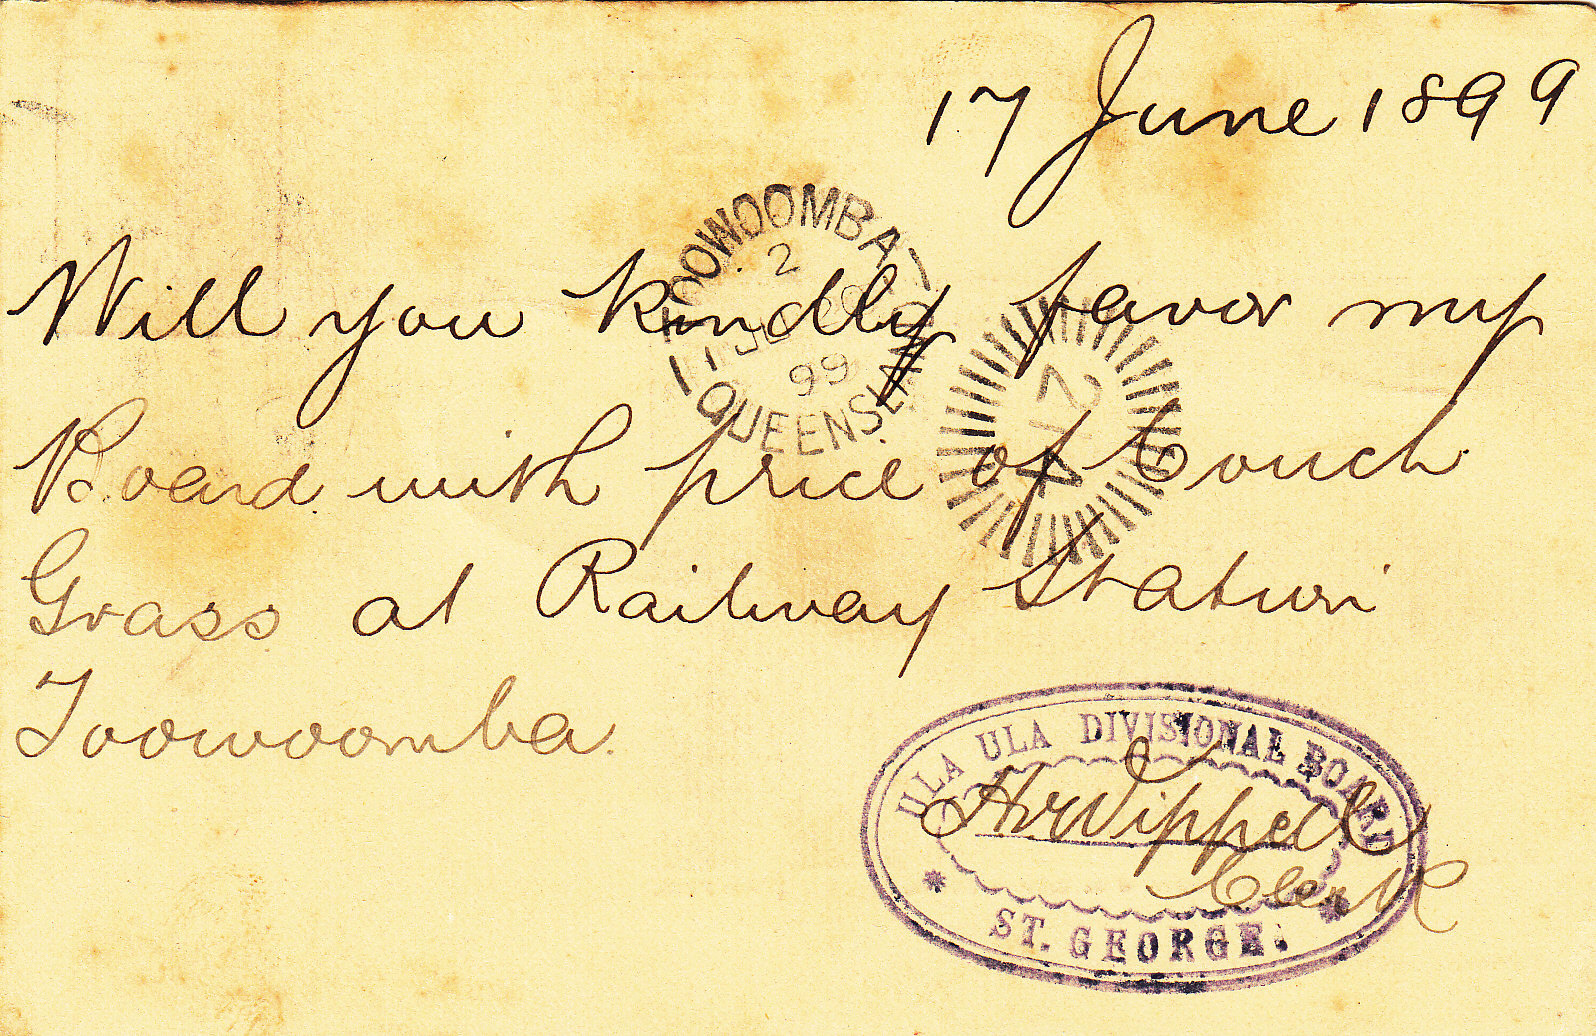 17 June 1899
TOOWOOMBA
2
99
QUEENSLAND
Will you kindly favor my
Board with price of Couch
Grass at Railway Station
Toowoomba.
214
ULA ULA DIVISIONAL BOARD
Wippell
Clerk
ST. GEORGE.